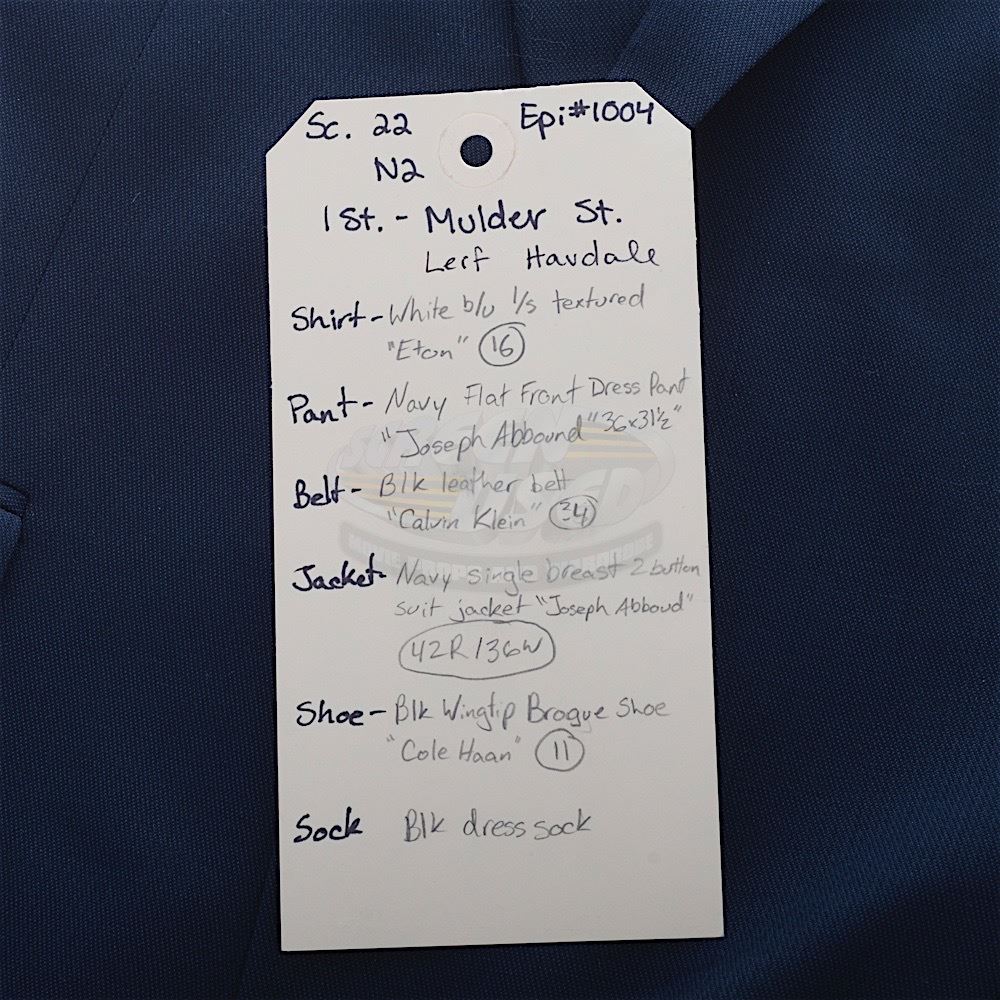 Sc. 22 Epi#1004
N2
1st. - Mulder St.
Leif Havdale
Shirt - White b/u l/s textured
"Eton" 16
Pant - Navy Flat Front Dress Pant
"Joseph Abbound" 36x31½"
Belt - Blk leather belt
"Calvin Klein" 34
Jacket - Navy single breast 2 button
suit jacket "Joseph Abboud"
42R/36W
Shoe - Blk Wingtip Brogue Shoe
"Cole Haan" 11
Sock Blk dress sock
SCREEN
USED